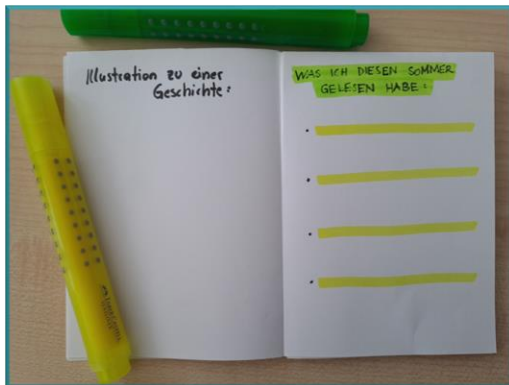 Illustration zu einer
Geschichte:
WAS ICH DIESEN SOMMER
GELESEN HABE: